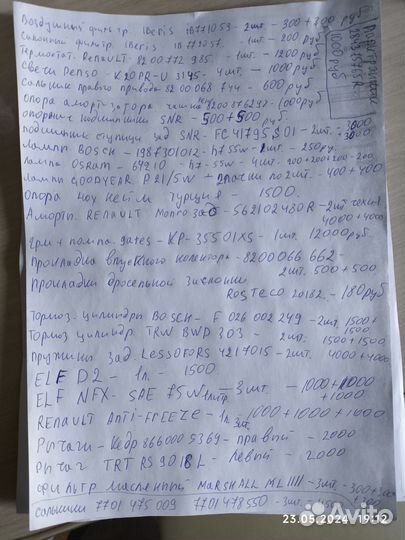 Воздушный фильтр IBeris IB771053 - 2шт - 300+300 руб
Салонный фильтр IBeris - 1шт - 200 руб
Термостат. Renault - 8200772985 - 1шт - 1200 руб
Свечи Denso - K20PR-U 3145 - 4шт. - 1000 руб
Сальник правого привода 8200068744 - 600 руб
опора амортизатора 1000 руб
опорные подшипники SNR - 500+500 руб.
подшипник ступицы зад SNR - FC41795S01 - 2шт.
лампы BOSCH - 1987301012 - h7 55w - 2шт - 250 ру.
лампа OSRAM - 64210 - h7 - 55w - 4шт - 200+200+200+200
лампы GOODYEAR P21/5W + 2шт. - 400+400
опора Турция - 1500.
Аморт. RENAULT 562102480R - 2шт
4000+4000
Грм + помпа. gates - KP-35501XS - 1шт. 12000 руб
Прокладка впускного коллектора - 8200066662 -
2шт. 500+500
Прокладки дросельной заслонки
Rosteco 20182. - 180 руб
Тормоз. цилиндры BOSCH - F 026 002 249 - 2шт 1500+
1500
Тормоз цилиндр. TRW BWD 303 - 2шт. 1500+1500
Пружины зад. Lesjofors 4217015 - 2шт. 4000+4000
ELF D2 - 1л. - 1500
ELF NFX - SAE 75W 3шт. - 1000+1000
+1000
RENAULT Anti-FREEZE - 1л - 1000+1000+1000
3шт.
Рычаги - Кедр 866000 5369 - правый - 2000
Рычаг TRT RS9018L - Левый - 2000
Фильтр масленный MARSHALL - 3шт - 300+300
Сальники 7701475009 7701478550 - 3шт.
Avito
23.05.2024 19:12